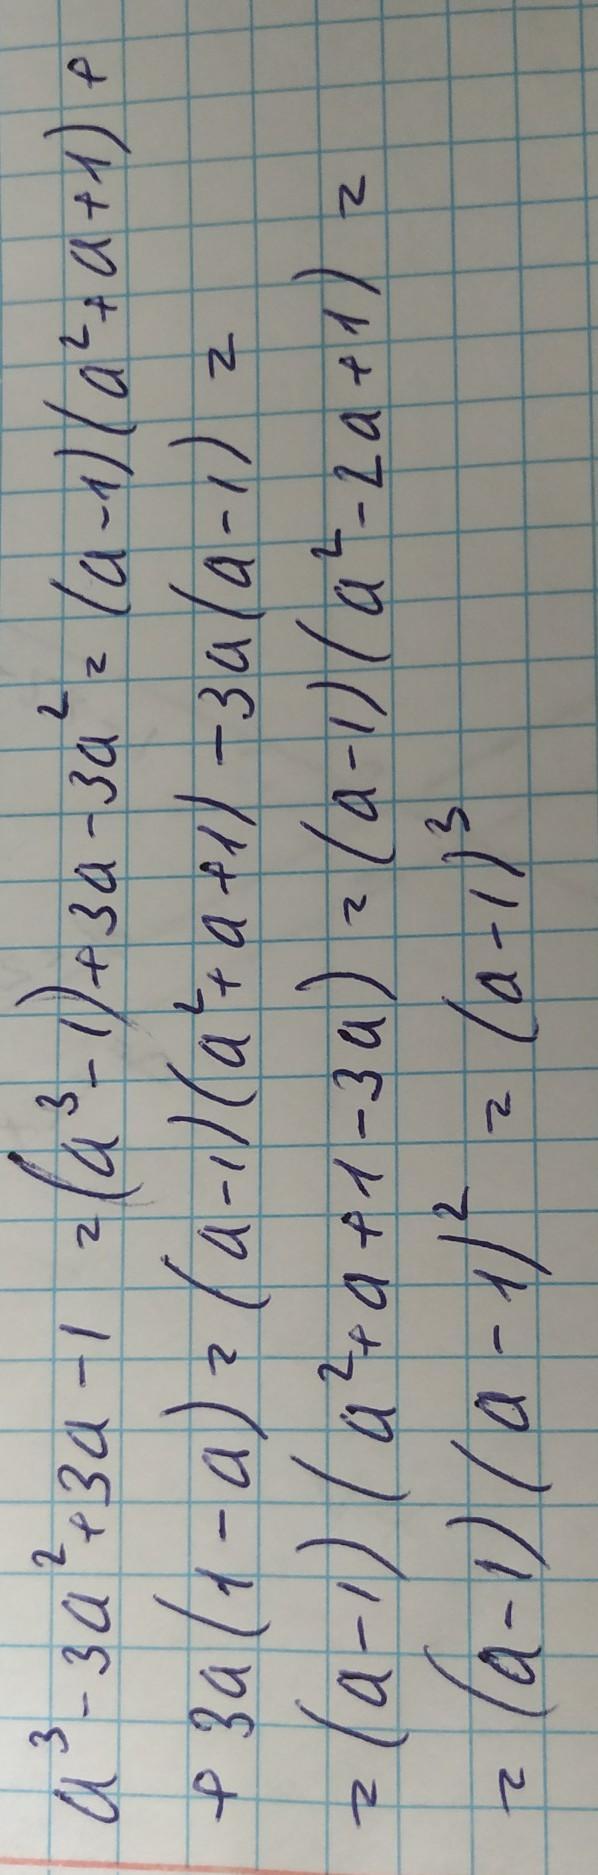 a³-3a²+3a-1 = (a³-1)+3a-3a² = (a-1)(a²+a+1)+
+3a(1-a) = (a-1)(a²+a+1)-3a(a-1) =
=(a-1)(a²+a+1-3a) = (a-1)(a²-2a+1) =
=(a-1)(a-1)² = (a-1)³